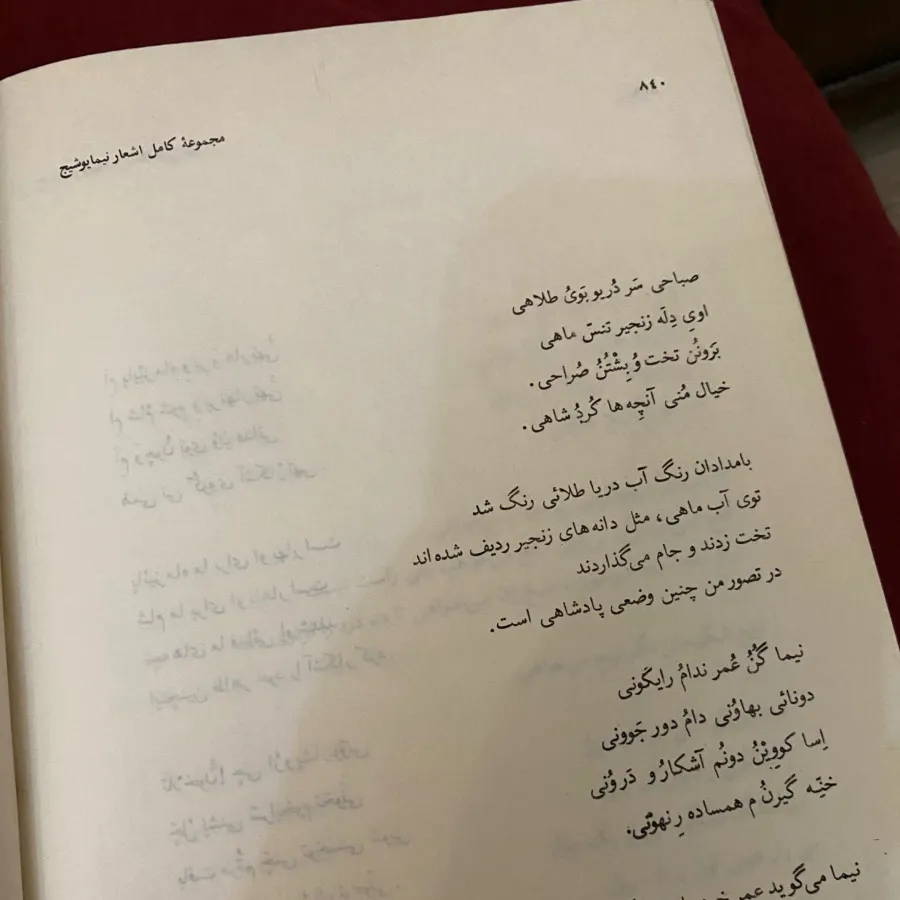 ۸۴۰
مجموعهٔ کامل اشعار نیمایوشیج
صباحی سَر دُریو بَویُ طلاهی
اویِ دِلَه زنجیر تنسّ ماهی
بَرونُن تخت وُ بِشْتُنُ صُراحی.
خیال مُنی آنچِه‌ها کُردِ شاهی.
بامدادان رنگ آب دریا طلائی رنگ شد
توی آب ماهی، مثل دانه‌های زنجیر ردیف شده‌اند
تخت زدند و جام می‌گذاردند
در تصور من چنین وضعی پادشاهی است.
نیما گُنُ عُمر ندامُ رایگونی
دونائی بهاوُنی دامُ دور جَوونی
اِسا کووینُ دونُم آشکارُ و دَروُنی
خنِّه گیرنُ م همساده رِ نهونّی.
نیما می‌گوید عمر